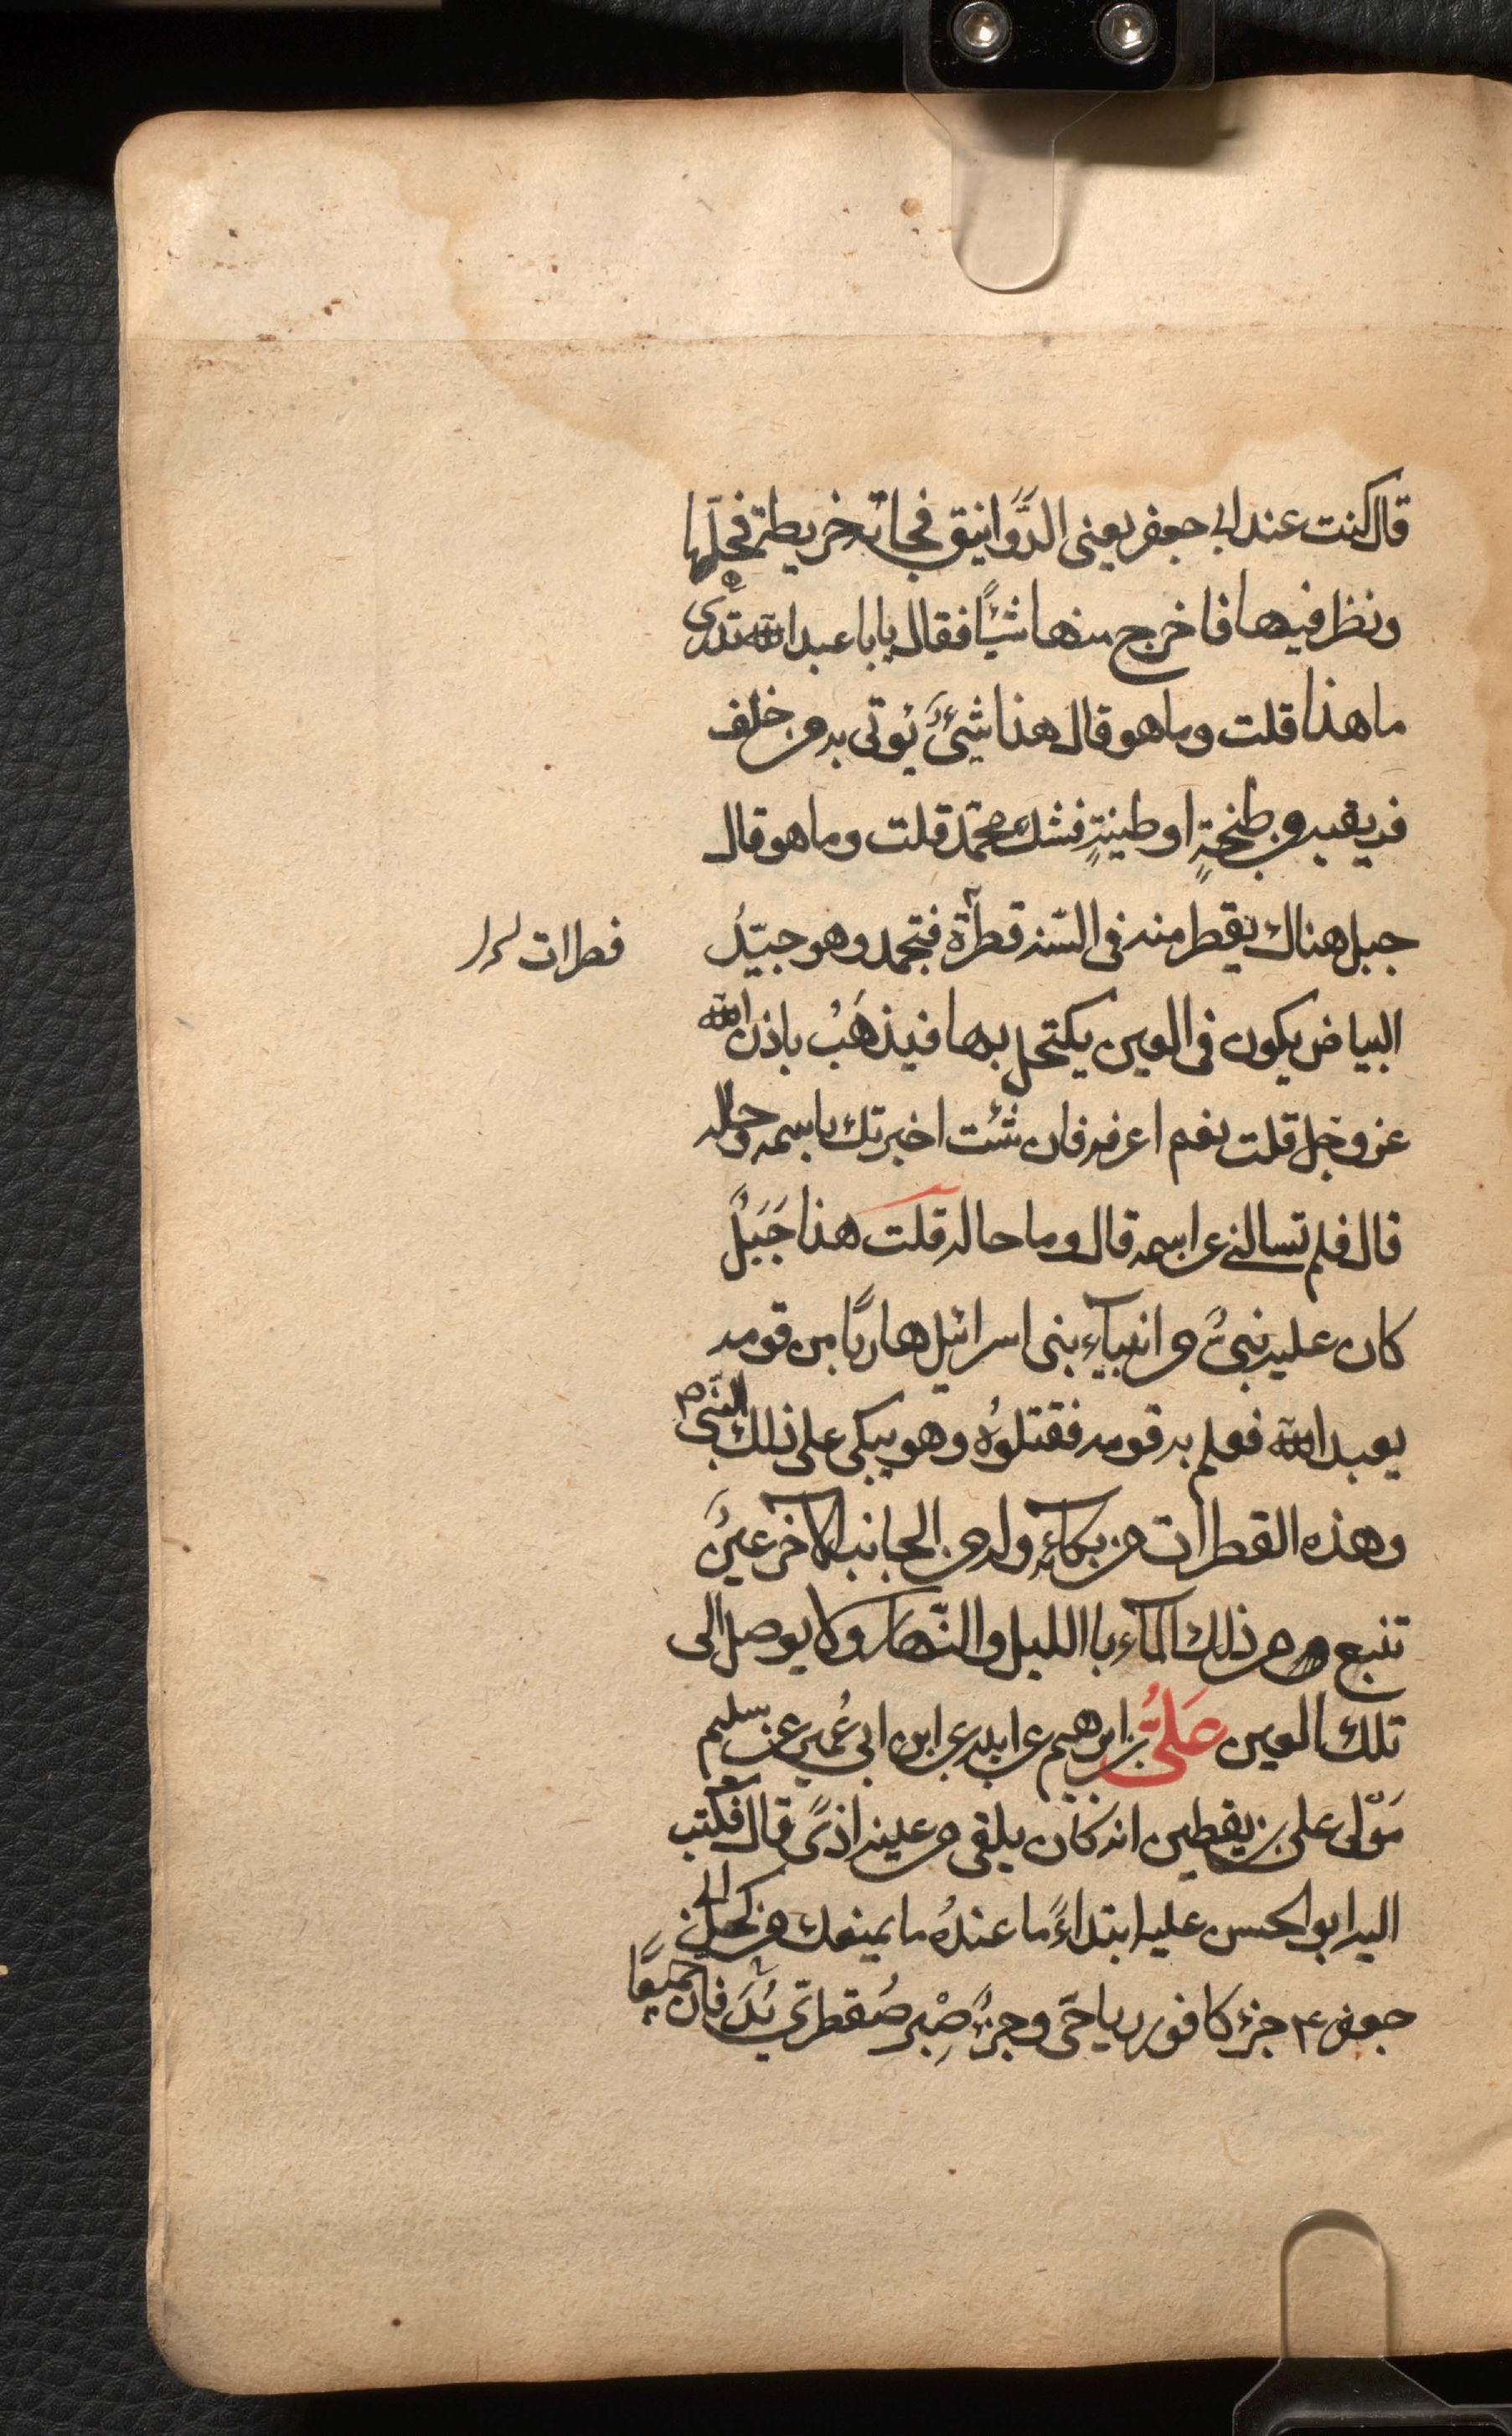 قال كنت عند ابى جعفر يعنى الدَّوانيق فجائه خريطة فحلّها
ونظر فيها فاخرج منها شيئًا فقال يابا عبد الله تدرى
ما هذا قلت وما هو قال هذا شئٌ يُوتى به من خلف
فريقيه من طنجةٍ او طينةٍ فشك محمّد قلت وما هو قال
جبل هناك يقطر منه فى السّنه قطرَة فتجمد وهو جيّدُ
فطرات
البياض يكون فى العين يكتحل بها فيذهَبُ باذن الله
عز وجل قلت نعم اعرفه فان شئت اخبرتك باسمه وحاله
قال فلم تسالنى عن اسمه قال وما حاله قلت هذا جَبَلٌ
كان عليه نبىٌ من انبيآء بنى اسرائيل هاربًا من قومه
يعبد الله فعلم به قومه فقتلوُه وهو يبكى على ذلك النّبى م
وهذه القطرات من بكآئه وله من الجانب الاخر عينٌ
تنبع من ذلك المآء با الليل والنّهار ولا يوصل الى
تلك العين عَلىُّ بن ابرهيم عن ابيه عن ابن ابى عُمير عن سليم
مَوْلى على بن يقطين انه كان يلقى من عينه اذًى قال فكتب
اليه ابو الحسن عليه ابتداءً ما عندهُ ما يمنعك من كحل ابى
جعفر ٤ جزء كافور رياحّى وجزءٌ صِبْر صُقطرىّ يُدَقان جميعًا